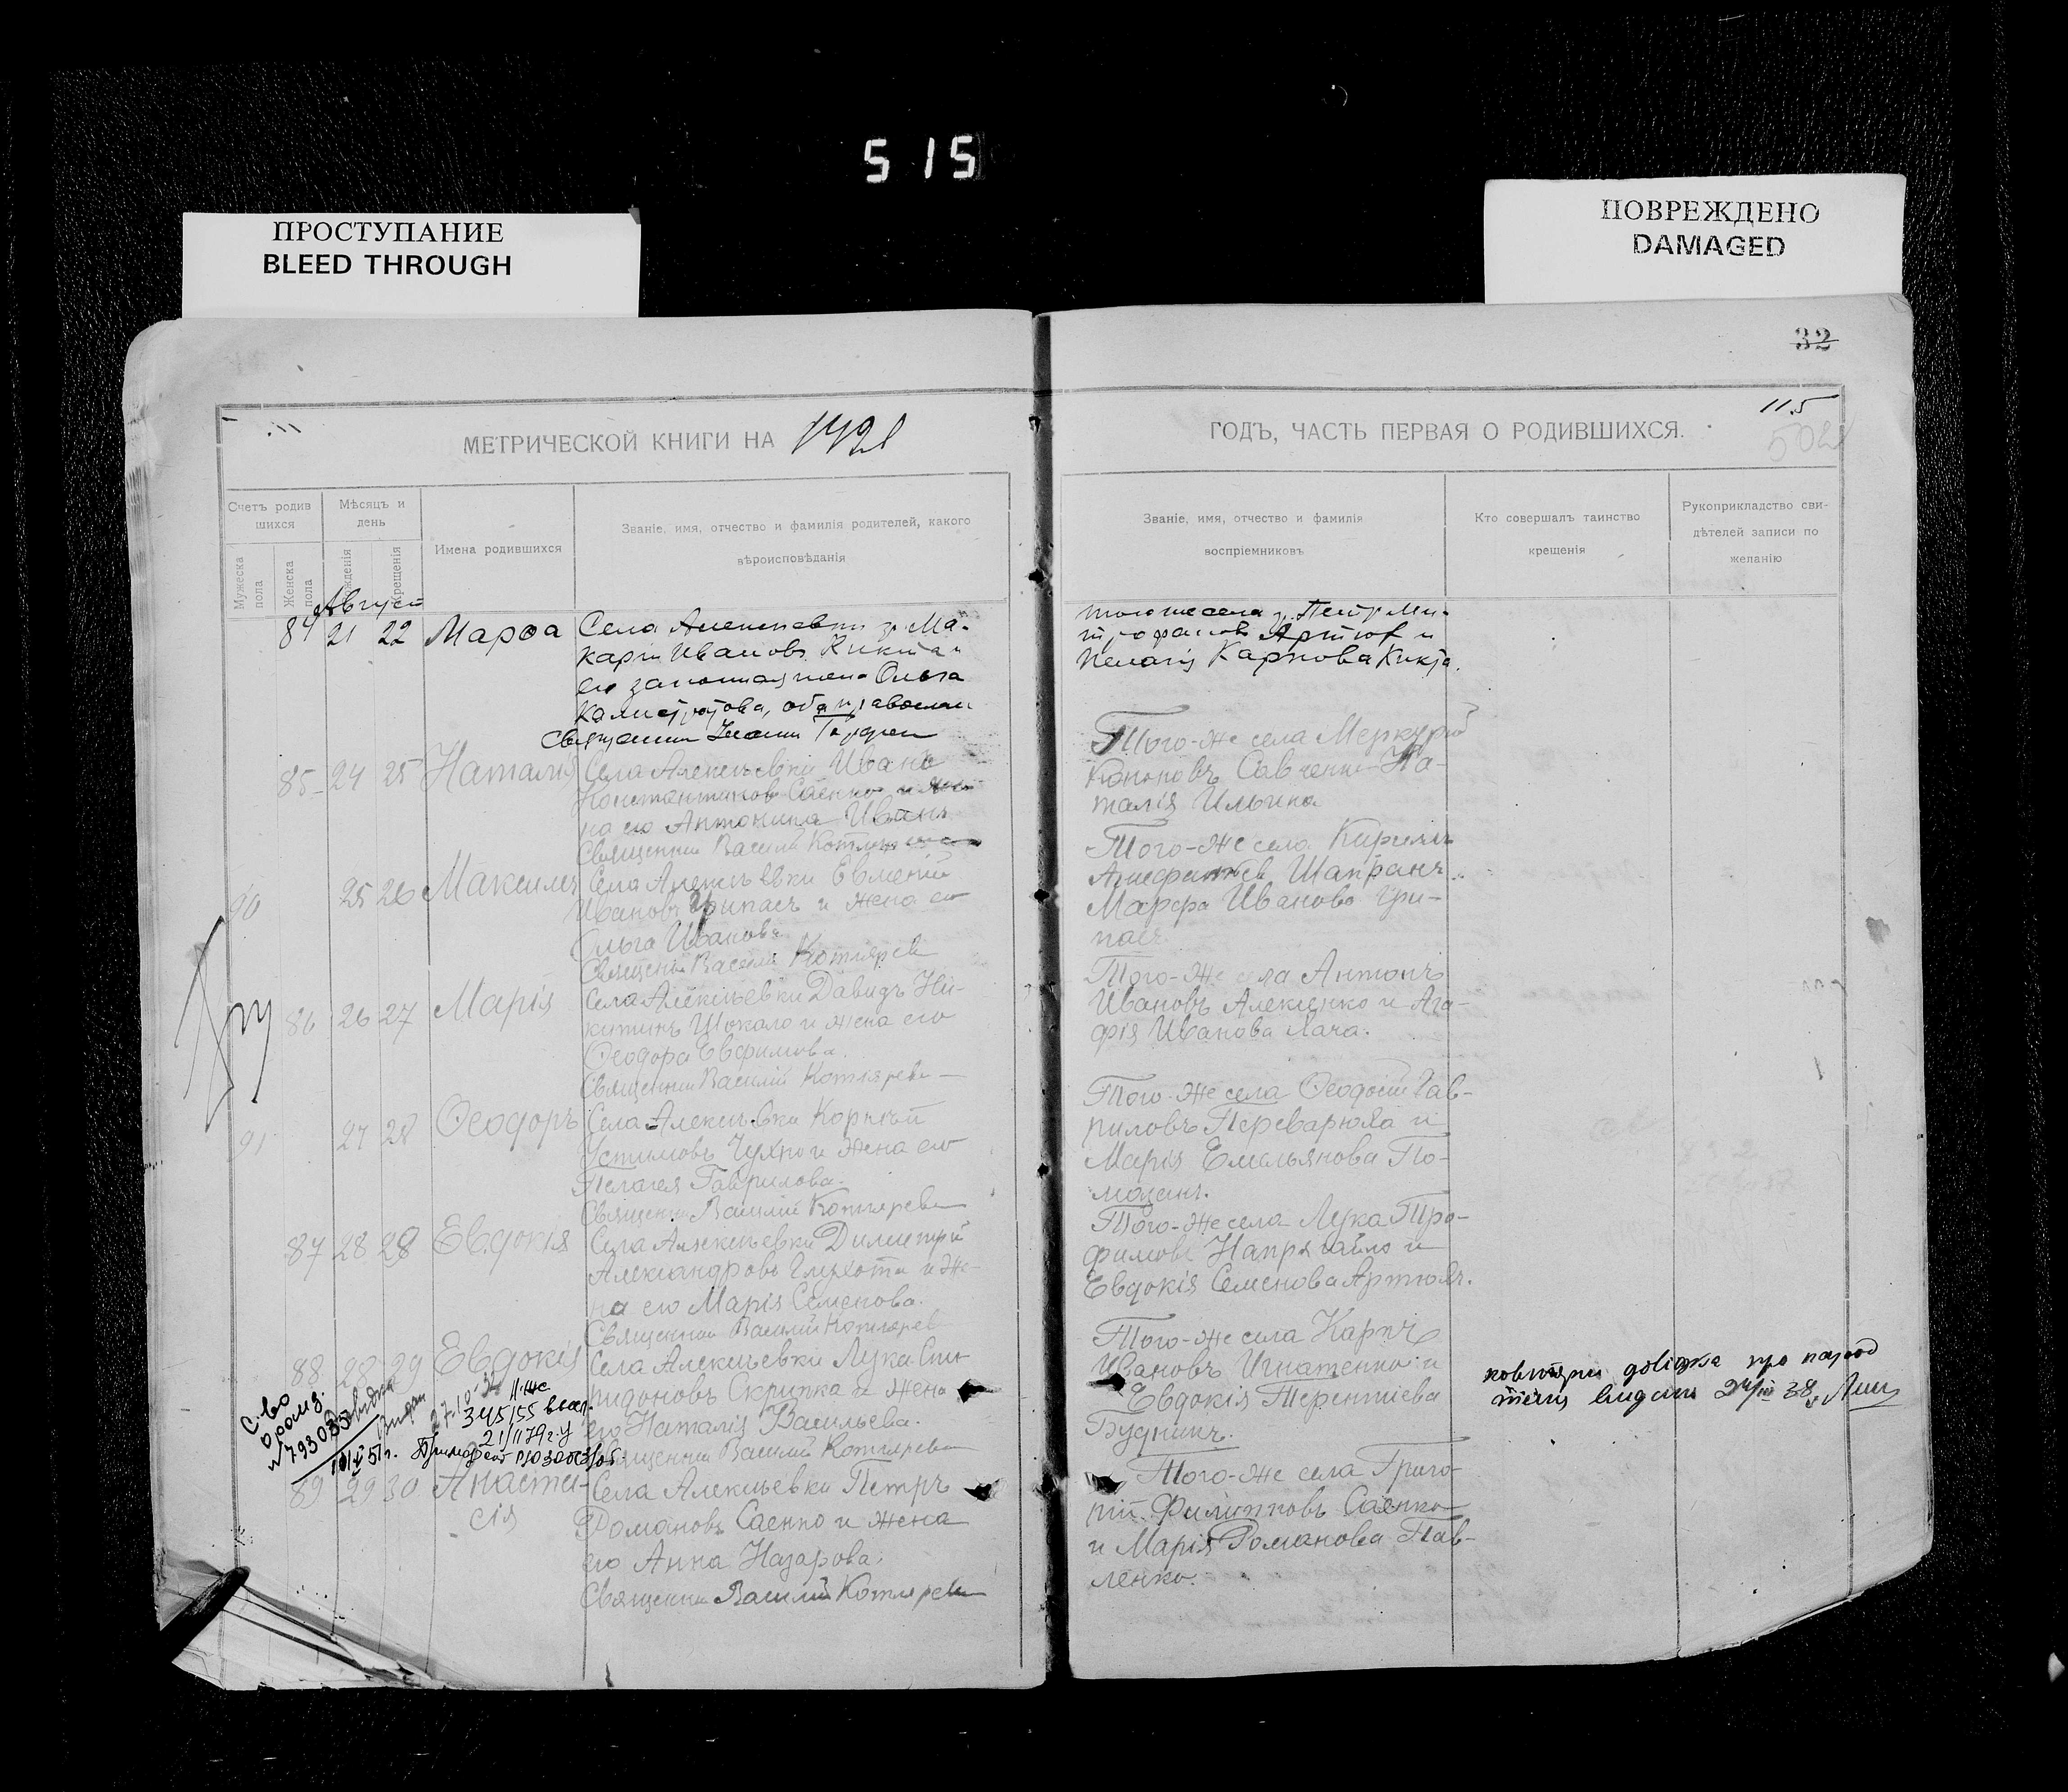 5 15
ПРОСТУПАНИЕ
BLEED THROUGH
ПОВРЕЖДЕНО
DAMAGED
32
115
502
МЕТРИЧЕСКОЙ КНИГИ НА 1921
ГОДЪ, ЧАСТЬ ПЕРВАЯ О РОДИВШИХСЯ.
Счетъ родив
шихся
Мужеска
пола
Женска
пола
Мѣсяцъ и
день
рожденія
крещенія
Имена родившихся
Званіе, имя, отчество и фамилія родителей, какого
вѣроисповѣданія
Званіе, имя, отчество и фамилія
воспріемниковъ
Кто совершалъ таинство
крещенія
Рукоприкладство сви-
дѣтелей записи по
желанію
Август
84 21 22 Марѳа
Села Алексеевки гр Ма-
карiй Иванов Кикта и
его законная жена Ольга
Калистратова, оба православн
Священник Иоанн
того же села гр. Петр Ми-
трофанов Артюх и
Пелагiя Карпова Кикта.
85 24 25 Наталія
Села Алексѣевки Иванъ
Константинов Саенко и же-
на его Антонина Иванов
Священник Василій Котляревс
Того-же села Меркурій
Кононовъ Савченко На-
талія Ильина
90 25 26 Максимъ
Села Алексѣевки Евменій
Ивановъ Грипасъ и жена его
Ольга Иванова
Священник Василій Котлярев
Того-же села Кириллъ
Шапранъ
Марѳа Иванова Гри-
пасъ
86 26 27 Марія
Села Алексѣевки Давидъ Ни-
китинъ Шокало и жена его
Ѳеодора Евфимова.
Священник Василій Котляревс
Того-же села Антонъ
Ивановъ Алексенко и Ага-
фія Иванова Лача.
91 27 28 Ѳеодоръ
Села Алексѣевки Корнѣй
Устимовъ Чухно и жена его
Пелагея Гаврилова.
Священник Василій Котляревс
Того-же села Ѳеодосій Гав-
риловъ Переварюха и
Марія Емельянова По-
мазанъ.
87 28 28 Евдокія
Села Алексѣевки Димитрій
Александровъ Глухота и же-
на его Марія Семенова.
Священник Василій Котлярев
Того-же села Лука Тро-
фимовъ Напрягайло и
Евдокія Семенова Артюхъ.
88 28 29 Евдокія
Села Алексѣевки Лука Спи-
ридоновъ Скрипка и жена
его Наталія Васильева.
Священник Василій Котляревс
Того-же села Карпъ
Ивановъ Игнатенко и
Евдокія Терентіева
Будникъ.
повторна довідка про народ
ження видана 24/III 38
89 29 30 Анаста-
сія
Села Алексѣевки Петръ
Романовъ Саенко и жена
его Анна Назарова.
Священник Василій Котляревс
Того-же села Григо-
рій Филипповъ Саенко
и Марія Романова Пав-
ленко.